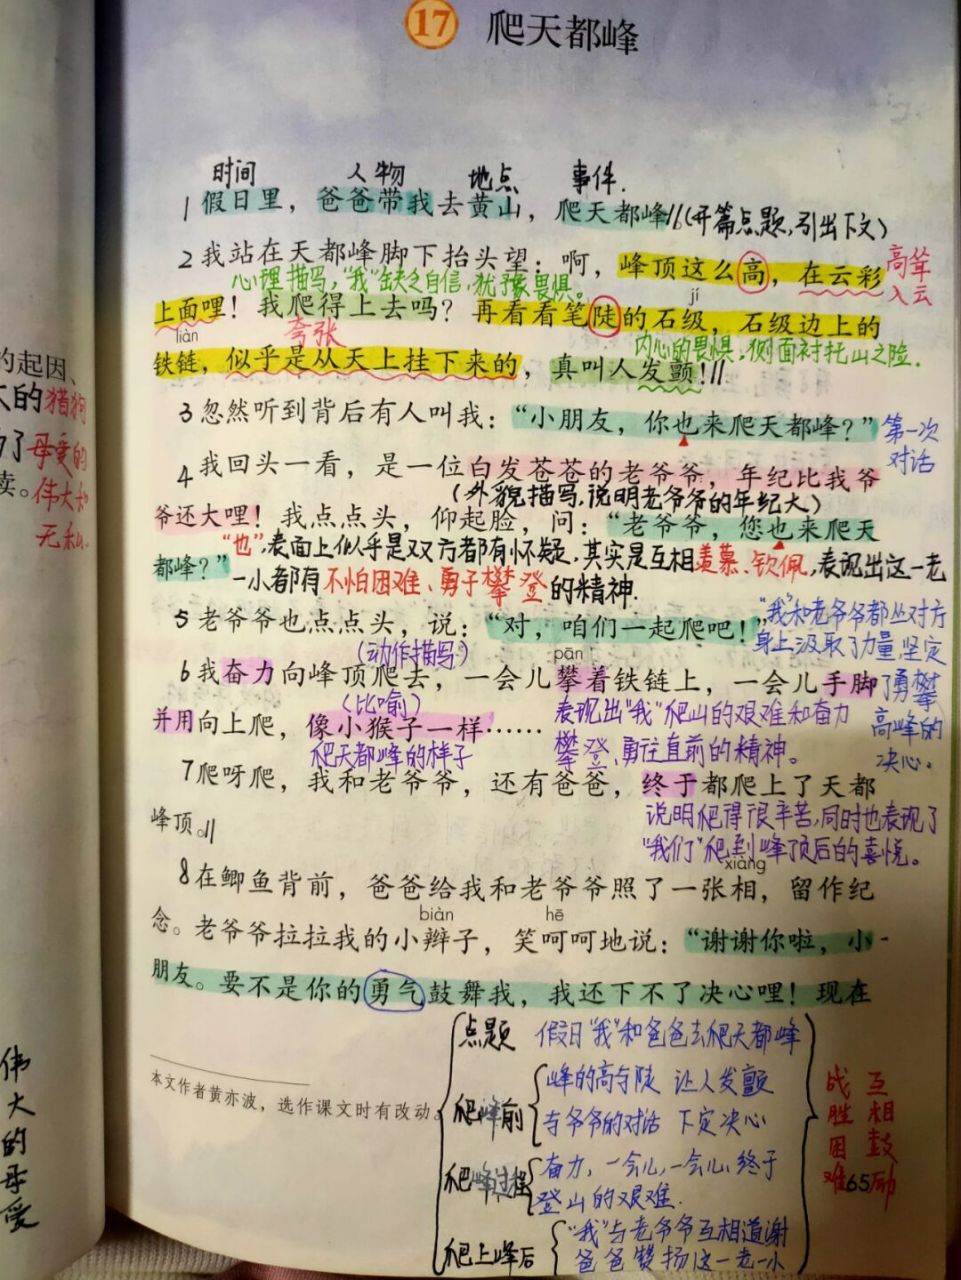 17 爬天都峰
时间 人物 地点 事件.
1 假日里，爸爸带我去黄山，爬天都峰‖(开篇点题,引出下文)
2 我站在天都峰脚下抬头望：啊，峰顶这么高，在云彩
高耸
入云
心理描写,"我"缺乏自信,犹豫畏惧。
jí
上面哩！我爬得上去吗？再看看笔陡的石级，石级边上的
liàn
夸张
内心的畏惧,侧面衬托山之险.
铁链，似乎是从天上挂下来的，真叫人发颤！‖
3 忽然听到背后有人叫我：“小朋友，你也来爬天都峰？”
第一次
对话
4 我回头一看，是一位白发苍苍的老爷爷，年纪比我爷
(外貌描写,说明老爷爷的年纪大)
爷还大哩！我点点头，仰起脸，问：“老爷爷，您也来爬天
"也",表面上似乎是双方都有怀疑,其实是互相羡慕、钦佩,表现出这一老
都峰？”
一小都有不怕困难、勇于攀登的精神.
5 老爷爷也点点头，说：“对，咱们一起爬吧！”
"我"和老爷爷都从对方
身上汲取了力量,坚定
了勇攀
高峰的
决心。
(动作描写)
pān
6 我奋力向峰顶爬去，一会儿攀着铁链上，一会儿手脚
(比喻)
表现出"我"爬山的艰难和奋力
并用向上爬，像小猴子一样……
爬天都峰的样子
攀登、勇往直前的精神。
7 爬呀爬，我和老爷爷，还有爸爸，终于都爬上了天都
峰顶。‖
说明爬得很辛苦,同时也表现了
"我们"爬到峰顶后的喜悦。
xiàng
8 在鲫鱼背前，爸爸给我和老爷爷照了一张相，留作纪
biàn hē
念。老爷爷拉拉我的小辫子，笑呵呵地说：“谢谢你啦，小
朋友。要不是你的勇气鼓舞我，我还下不了决心哩！现在
本文作者黄亦波，选作课文时有改动。
点题 假日"我"和爸爸去爬天都峰
爬峰前 峰的高与陡 让人发颤
与爷爷的对话 下定决心
爬峰过程 奋力,一会儿,一会儿,终于
登山的艰难.
爬上峰后 "我"与老爷爷互相道谢
爸爸赞扬这一老一小
战胜困难
互相鼓励
65
的起因、
大的猎狗
为了母爱的
读。伟大和
无私.
伟
大
的
母
爱